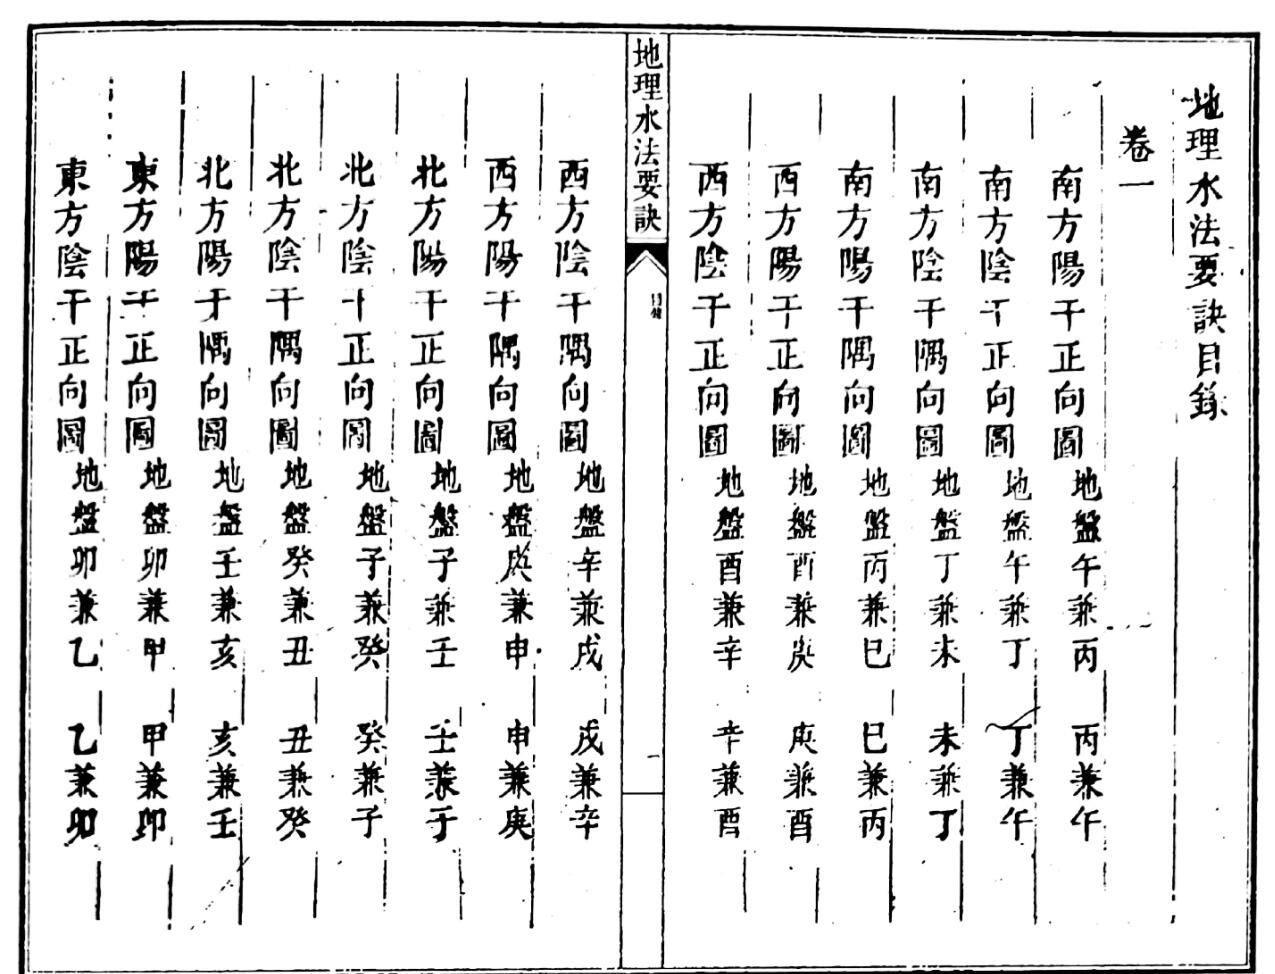 地理水法要訣目錄
卷一
南方陽干正向圖 地盤午兼丙 丙兼午
南方陰干正向圖 地盤午兼丁 丁兼午
南方陰干隅向圖 地盤丁兼未 未兼丁
南方陽干隅向圖 地盤丙兼巳 巳兼丙
西方陽干正向圖 地盤酉兼庚 庚兼酉
西方陰干正向圖 地盤酉兼辛 辛兼酉
地理水法要訣
目錄
一
西方陰干隅向圖 地盤辛兼戌 戌兼辛
西方陽干隅向圖 地盤庚兼申 申兼庚
北方陽干正向圖 地盤子兼壬 壬兼子
北方陰干正向圖 地盤子兼癸 癸兼子
北方陰干隅向圖 地盤癸兼丑 丑兼癸
北方陽干隅向圖 地盤壬兼亥 亥兼壬
東方陽干正向圖 地盤卯兼甲 甲兼卯
東方陰干正向圖 地盤卯兼乙 乙兼卯